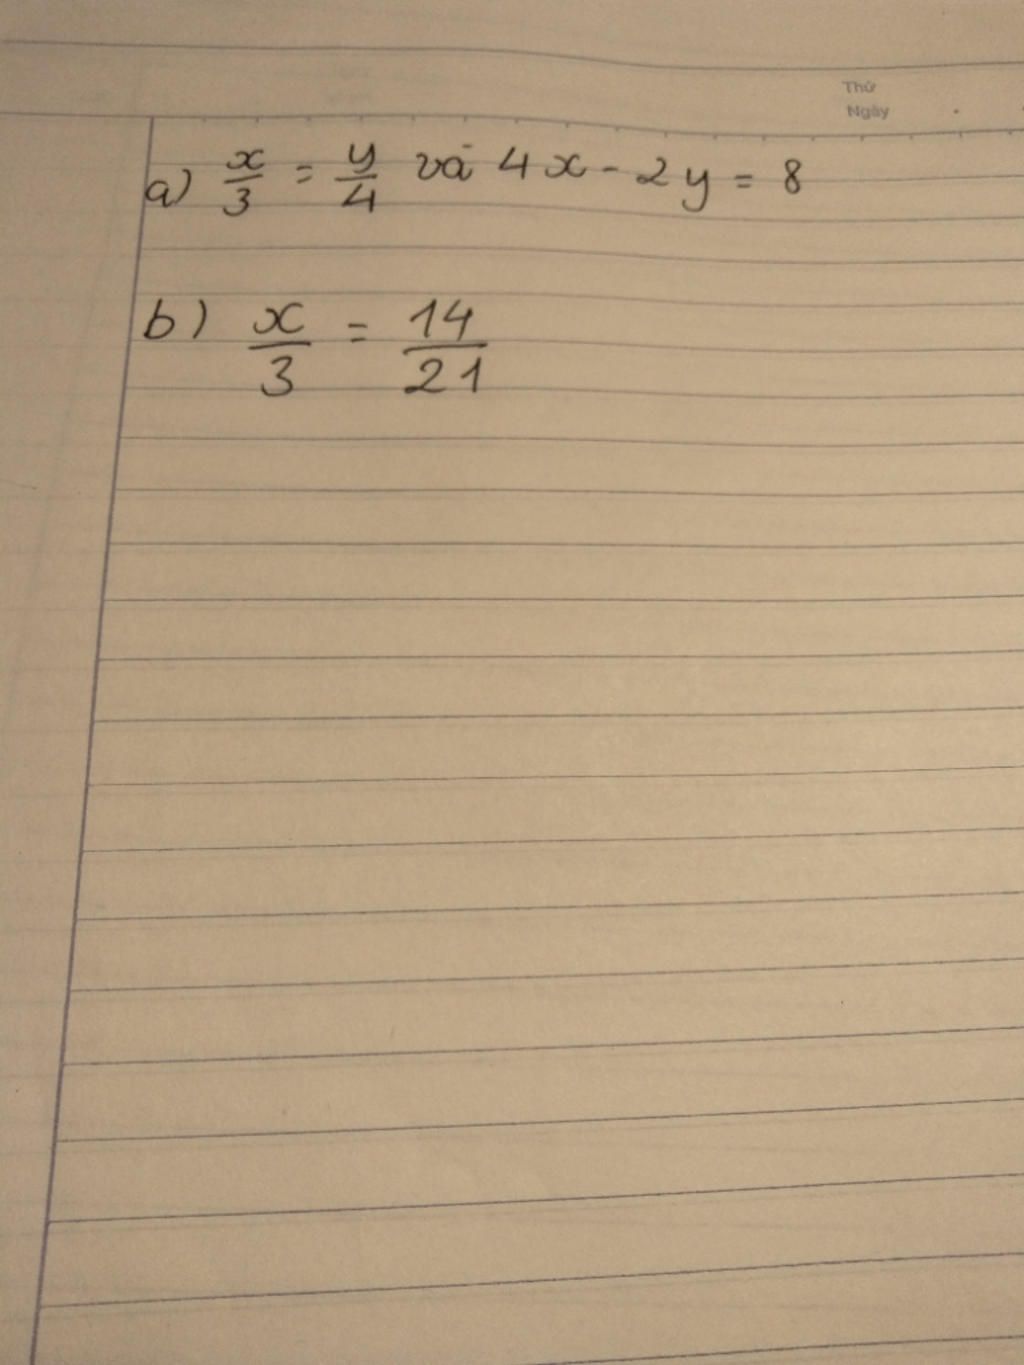 Thứ
Ngày
a) x/3 = y/4 và 4x - 2y = 8
b) x/3 = 14/21